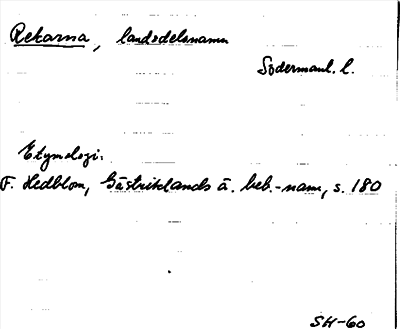 Rekarna, landsdelsnamn
Södermanl. l.
Etymologi:
F. Hedblom, Gästriklands ä. beb.-namn, s. 180
SH-60